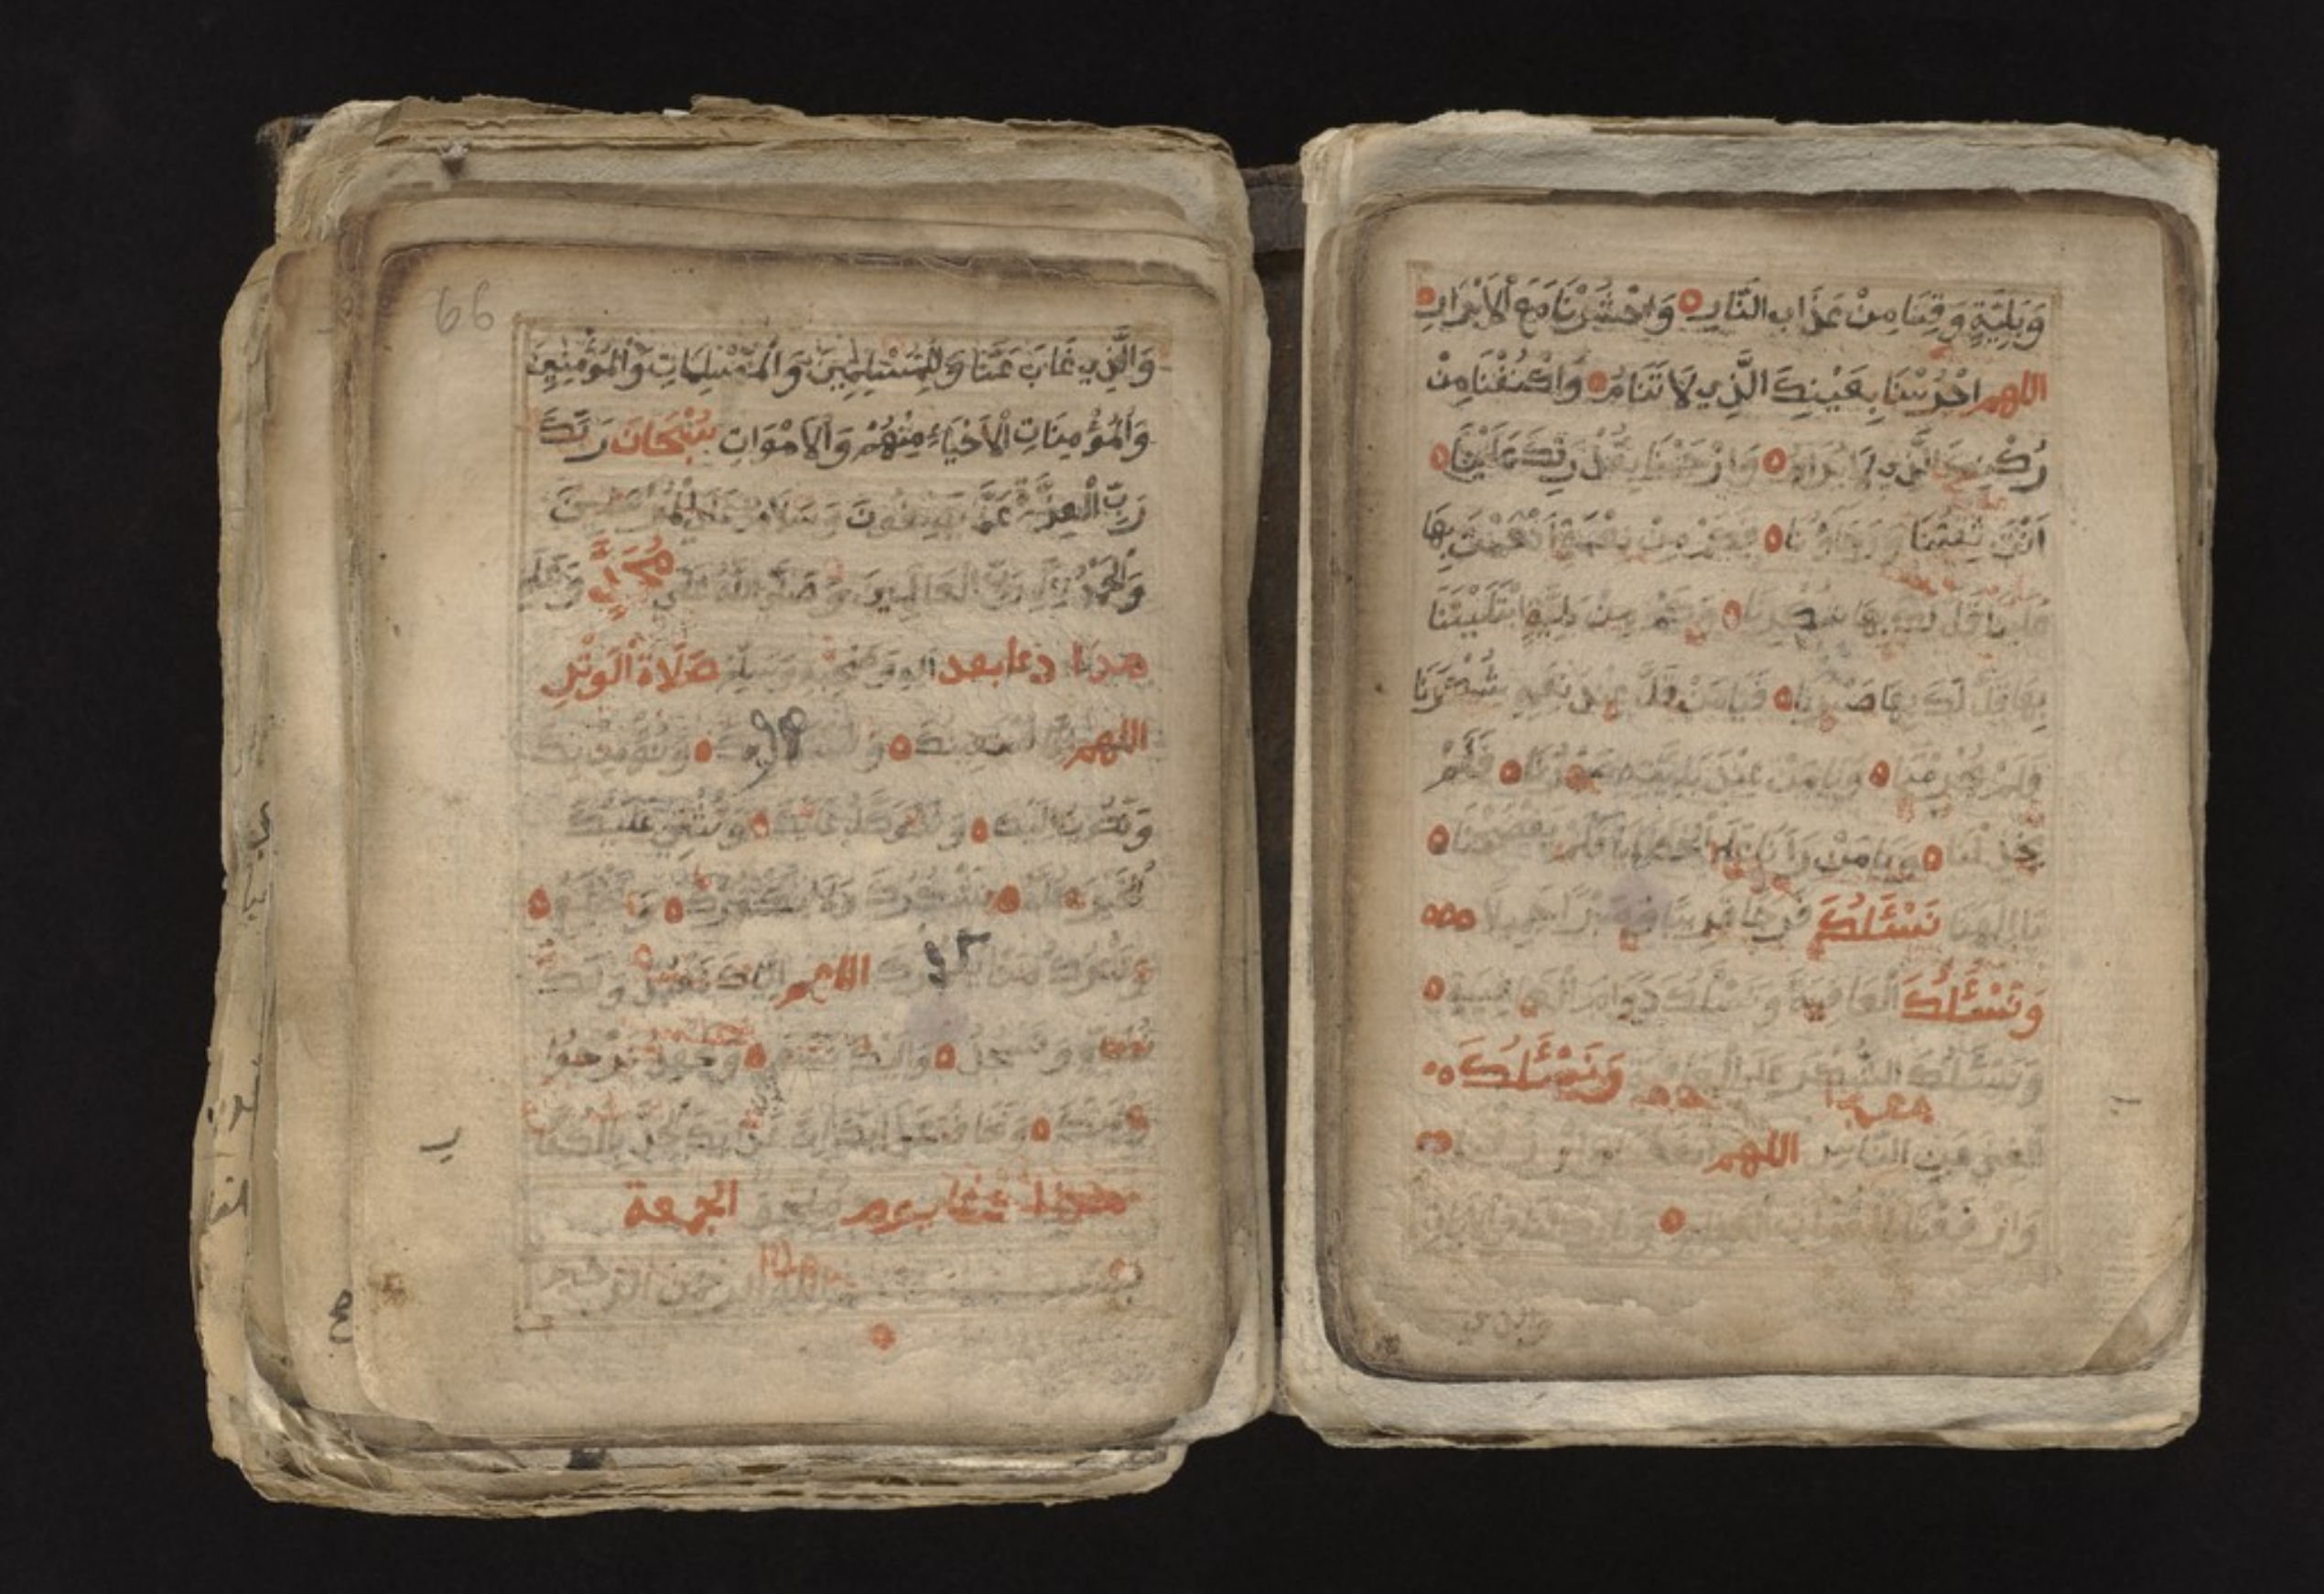 وَبَلِيَّةٍ وَقِنَا مِنْ عَذَابِ النَّارِ وَاحْشُرْنَا مَعَ الْاَبْرَارِ
اللهم احْرُسْنَا بِعَيْنِكَ الَّذِي لَا تَنَامُ وَاكْنُفْنَا مِنْ
رُكْنِكَ الَّذِي لَا يُرَامُ وَارْحَمْنَا بِقُدْرَتِكَ عَلَيْنَا
اَنْتَ ثِقَتُنَا وَرَجَاؤُنَا فَكَمْ مِنْ نِعْمَةٍ اَنْعَمْتَ بِهَا
عَلَيْنَا قَلَّ لَكَ بِهَا شُكْرُنَا وَكَمْ مِنْ بَلِيَّةٍ ابْتَلَيْتَنَا
بِهَا قَلَّ لَكَ بِهَا صَبْرُنَا فَيَا مَنْ قَلَّ عِنْدَ نِعَمِهِ شُكْرُنَا
وَلَمْ يَحْرِمْنَا وَيَا مَنْ عِنْدَ بَلِيَّتِهِ صَبْرُنَا فَلَمْ
يَخْذُلْنَا وَيَا مَنْ رَآنَا عَلَى الْخَطَايَا فَلَمْ يَفْضَحْنَا
يَا اِلٰهَنَا نَسْئَلُكَ فَرَجًا قَرِيبًا وَصَبْرًا جَمِيلًا
وَنَسْئَلُكَ الْعَافِيَةَ وَنَسْئَلُكَ دَوَامَ الْعَافِيَةِ
وَنَسْئَلُكَ الشُّكْرَ عَلَى الْعَافِيَةِ وَنَسْئَلُكَ
الْغِنَى عَنِ النَّاسِ اللهم
66
وَالَّذِي غَابَ عَنَّا وَلِلْمُسْلِمِينَ وَالْمُسْلِمَاتِ وَالْمُؤْمِنِينَ
وَالْمُؤْمِنَاتِ الْاَحْيَاءِ مِنْهُمْ وَالْاَمْوَاتِ سُبْحَانَ رَبِّكَ
رَبِّ الْعِزَّةِ عَمَّا يَصِفُونَ وَسَلَامٌ عَلَى الْمُرْسَلِينَ
وَالْحَمْدُ لِلَّهِ رَبِّ الْعَالَمِينَ وَصَلَّى اللهُ عَلَى مُحَمَّدٍ وَعَلَى
هذا دعا بعد اله وصحبه وسلم صَلَاةِ الْوِتْرِ
اللهم اِنَّا نَسْتَعِينُكَ وَنُؤْمِنُ بِكَ
وَنَتُوبُ اِلَيْكَ وَنَتَوَكَّلُ عَلَيْكَ وَنُثْنِي عَلَيْكَ
الْخَيْرَ كُلَّهُ نَشْكُرُكَ وَلَا نَكْفُرُكَ وَنَخْلَعُ
وَنَتْرُكُ مَنْ يَفْجُرُكَ اللهم اِيَّاكَ نَعْبُدُ وَلَكَ
نُصَلِّي وَنَسْجُدُ وَاِلَيْكَ نَسْعَى وَنَحْفِدُ نَرْجُوا
رَحْمَتَكَ وَنَخَافُ عَذَابَكَ اِنَّ عَذَابَكَ الْجِدَّ بِالْكُفَّارِ
هذا دعا يوم الجمعة
بسم الله الرحمن الرحيم